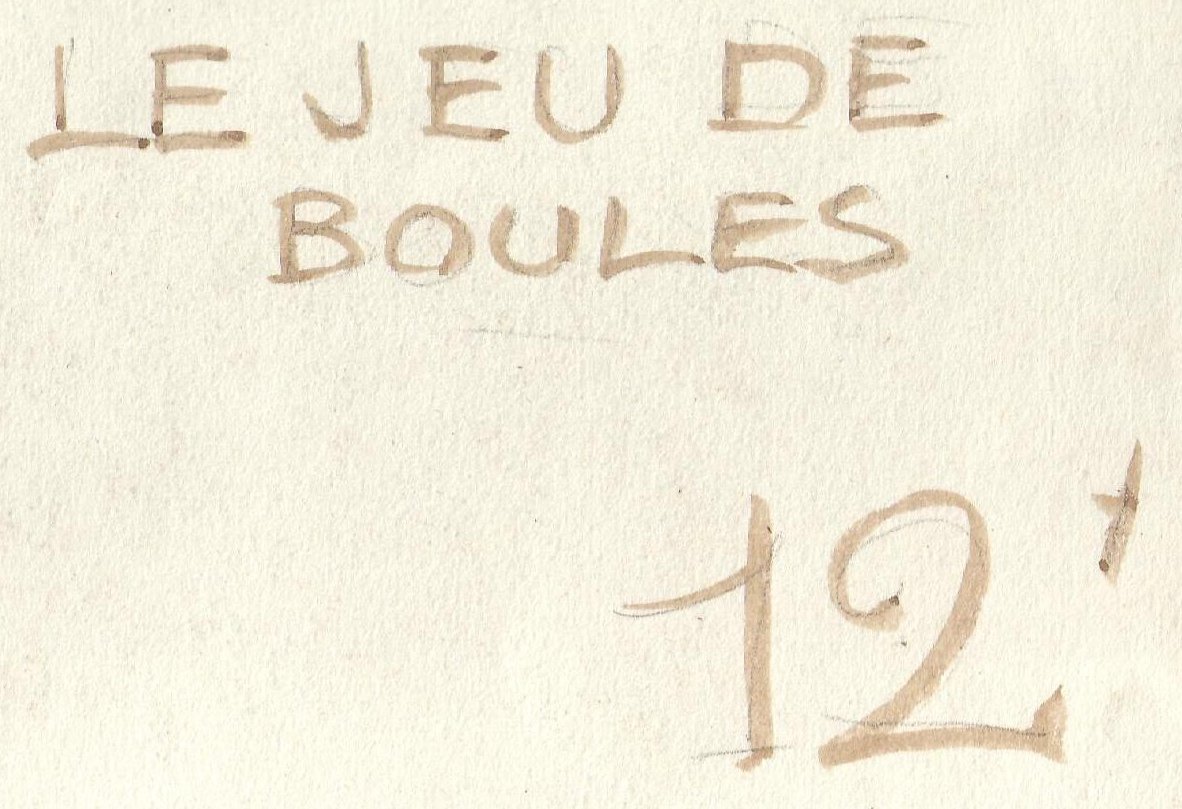 LE JEU DE
BOULES
12'